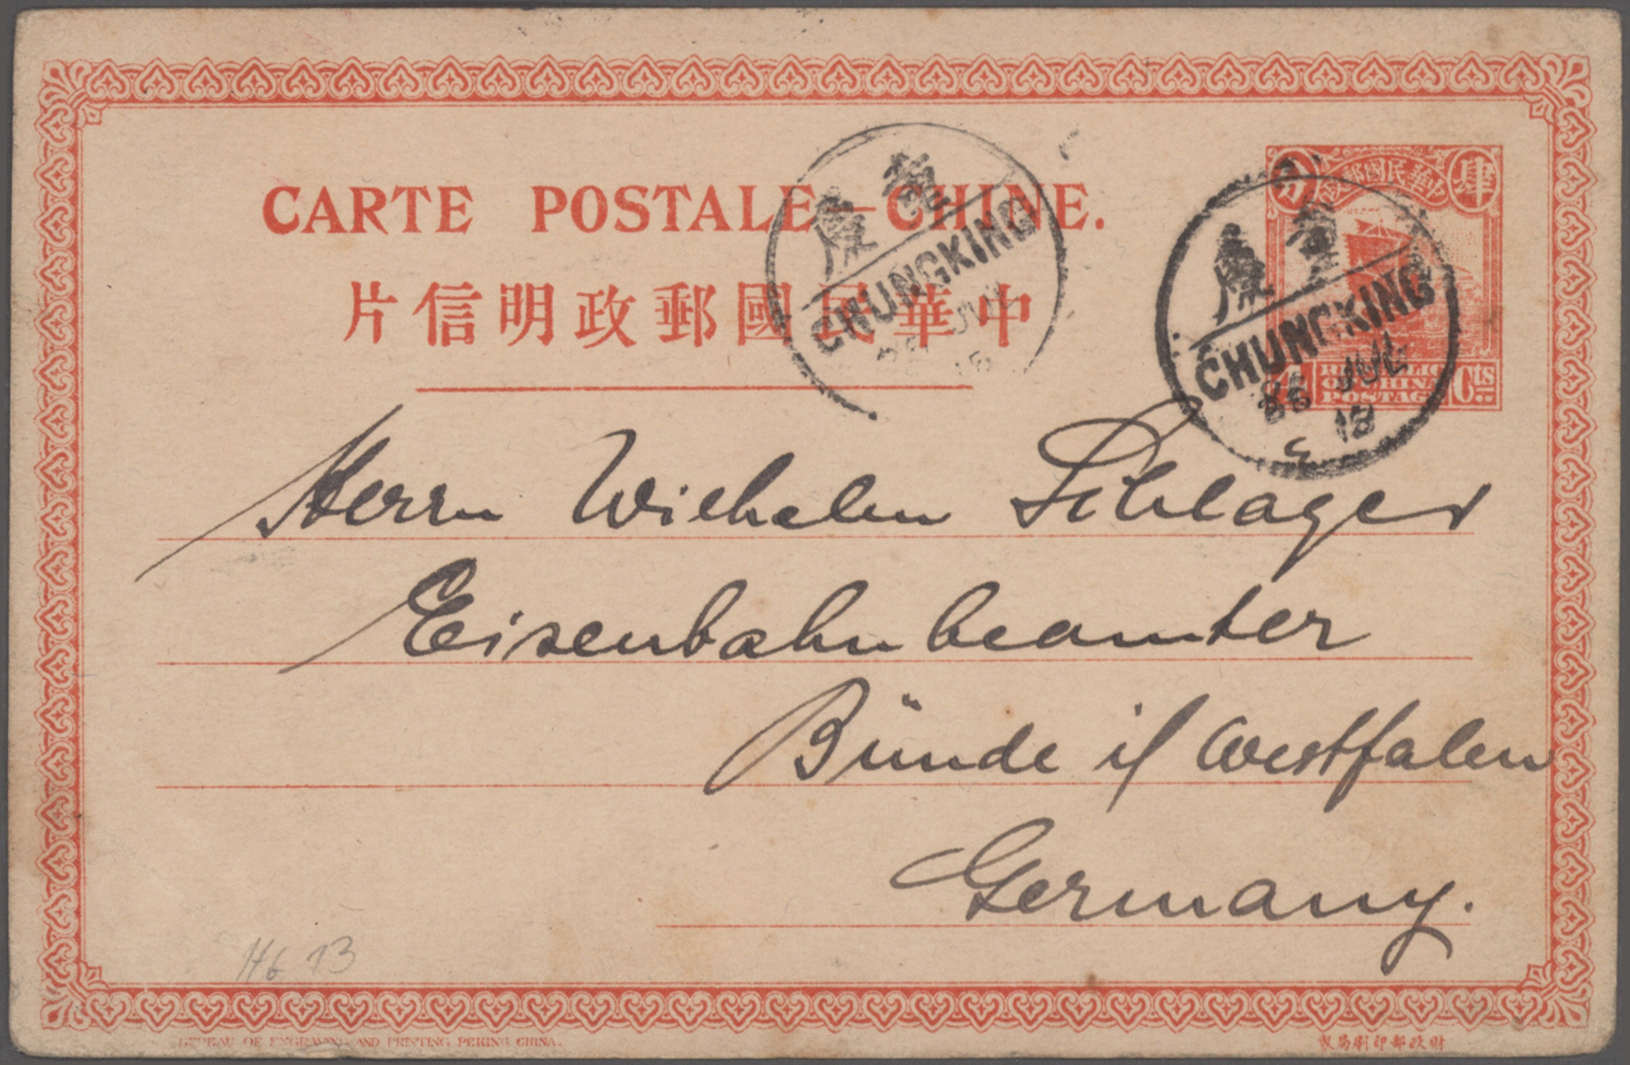 CARTE POSTALE—CHINE.
中華民國郵政明信片
中華民國郵政
肆分
4 Cts
REPUBLIC OF CHINA
POSTAGE
重慶
CHUNGKING
JUL
重慶
CHUNGKING
JUL
Herrn Wilhelm Schlager
Eisenbahnbeamter
Bünde i/ Westfalen
Germany.
HG 13
BUREAU OF ENGRAVING AND PRINTING PEKING CHINA.
財政部印刷局製